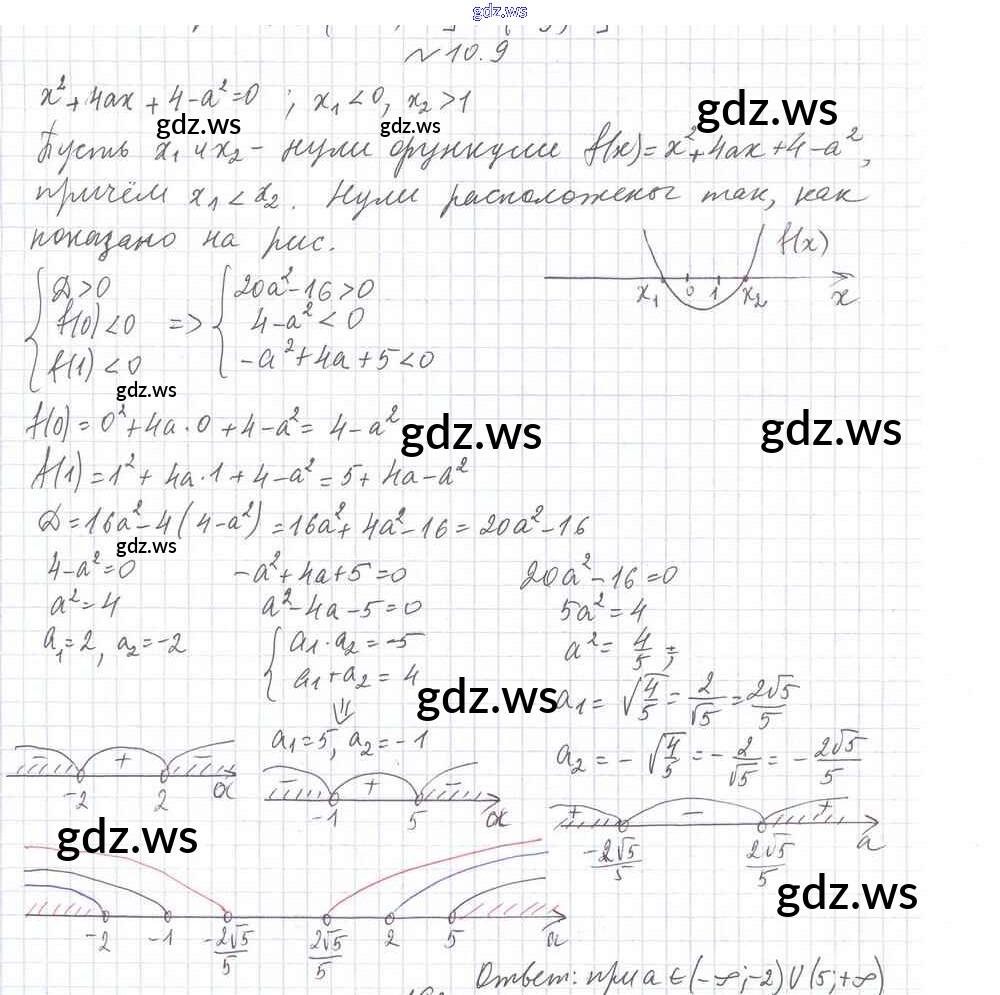 gdz.ws
№ 10.9
x²+4ax+4-a²=0 ; x₁<0, x₂>1
gdz.ws gdz.ws gdz.ws
Пусть x₁ и x₂ - нули функции f(x)=x²+4ax+4-a²,
причём x₁<x₂. Нули расположены так, как
показано на рис.
f(x)
x₁ 0 1 x₂ x
{ Д>0 { 20a²-16>0
f(0)<0 => 4-a²<0
f(1)<0 -a²+4a+5<0
gdz.ws
f(0)=0²+4a·0+4-a²=4-a²
gdz.ws gdz.ws
f(1)=1²+4a·1+4-a²=5+4a-a²
Д=16a²-4(4-a²)=16a²+4a²-16=20a²-16
gdz.ws
4-a²=0 -a²+4a+5=0 20a²-16=0
a²=4 a²-4a-5=0 5a²=4
a₁=2, a₂=-2 { a₁·a₂=-5 a²=4/5;
a₁+a₂=4
gdz.ws
a₁=√(4/5)=2/√5=2√5/5
⇓
a₁=5, a₂=-1 a₂=-√(4/5)=-2/√5=-2√5/5
- + -
-2 2 a
- + -
-1 5 a
+ - +
-2√5/5 2√5/5 a
gdz.ws
gdz.ws
-2 -1 -2√5/5 2√5/5 2 5 a
Ответ: при a∈(-∞;-2)∪(5;+∞)